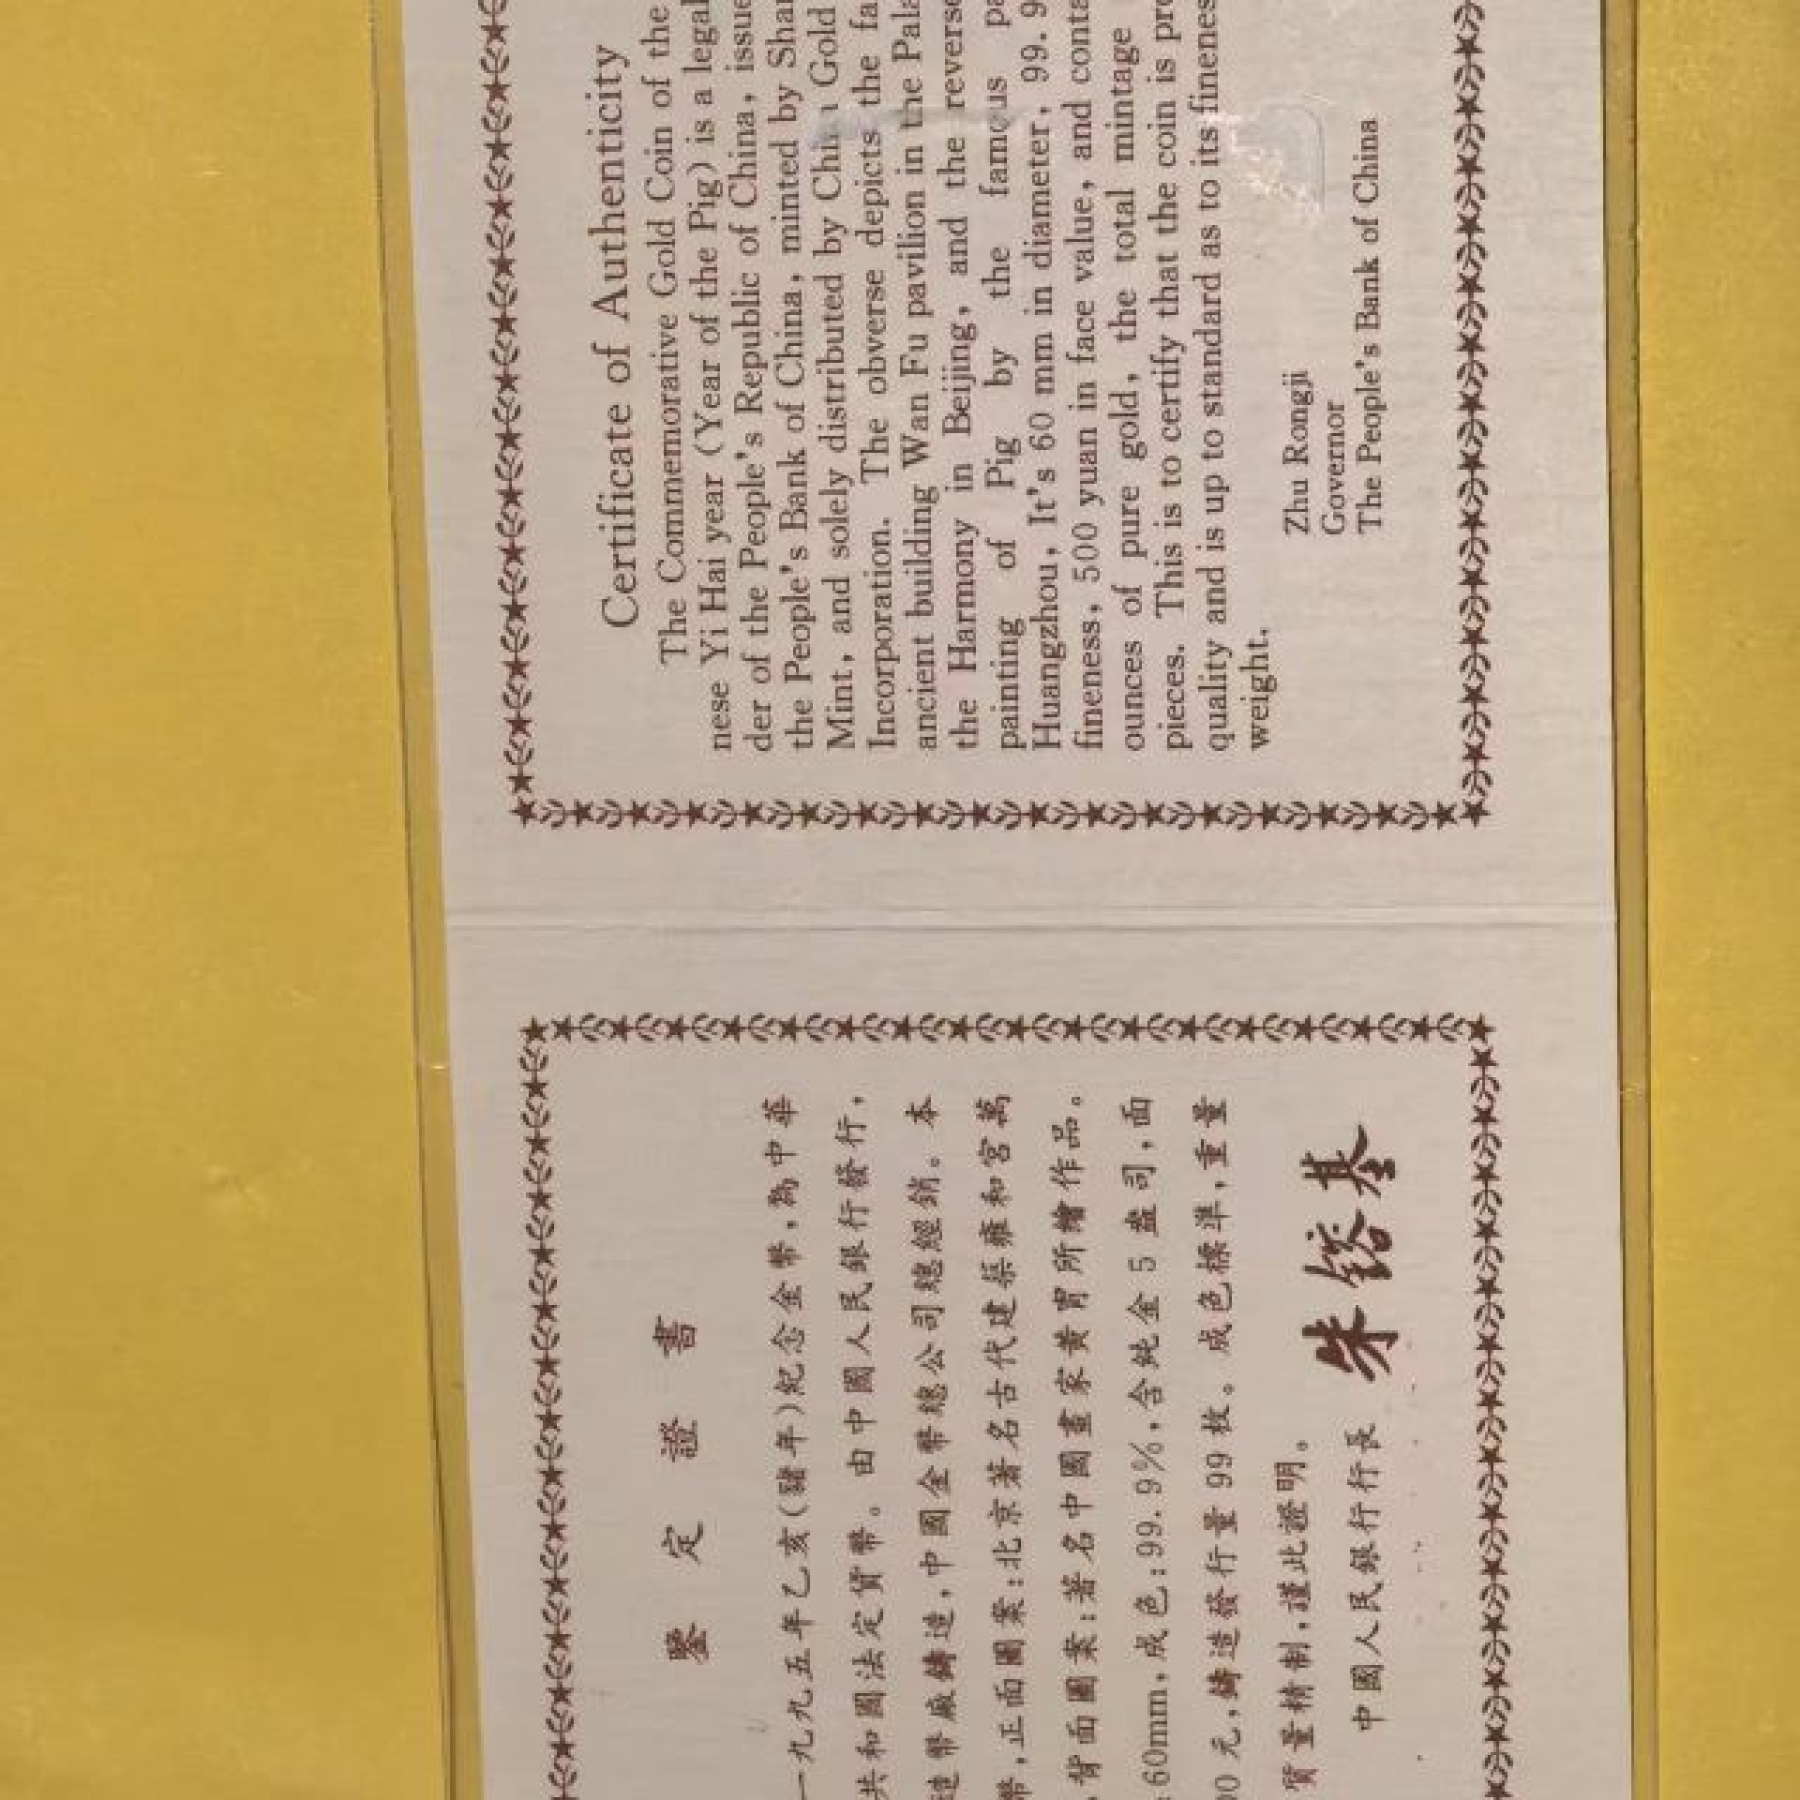 Certificate of Authenticity
The Commemorative Gold Coin of the
nese Yi Hai year (Year of the Pig) is a legal
der of the People's Republic of China, issue
the People's Bank of China, minted by Shan
Mint, and solely distributed by China Gold
Incorporation. The obverse depicts the fa
ancient building Wan Fu pavilion in the Pala
the Harmony in Beijing, and the reverse
painting of Pig by the famous pa
Huangzhou, It's 60 mm in diameter, 99.9
fineness, 500 yuan in face value, and conta
ounces of pure gold, the total mintage
pieces. This is to certify that the coin is pre
quality and is up to standard as to its fineness
weight.
Zhu Rongji
Governor
The People's Bank of China
鑒定證書
一九九五年乙亥(豬年)紀念金幣,為中華
共和國法定貨幣。由中國人民銀行發行,
造幣廠鑄造,中國金幣總公司總經銷。本
幣,正面圖案:北京著名古代建築雍和宮萬
,背面圖案:著名中國畫家黃胄所繪作品。
60mm,成色:99.9%,含純金5盎司,面
00元,鑄造發行量99枚。成色標準,重量
質量精制,謹此證明。
中國人民銀行行長 朱鎔基